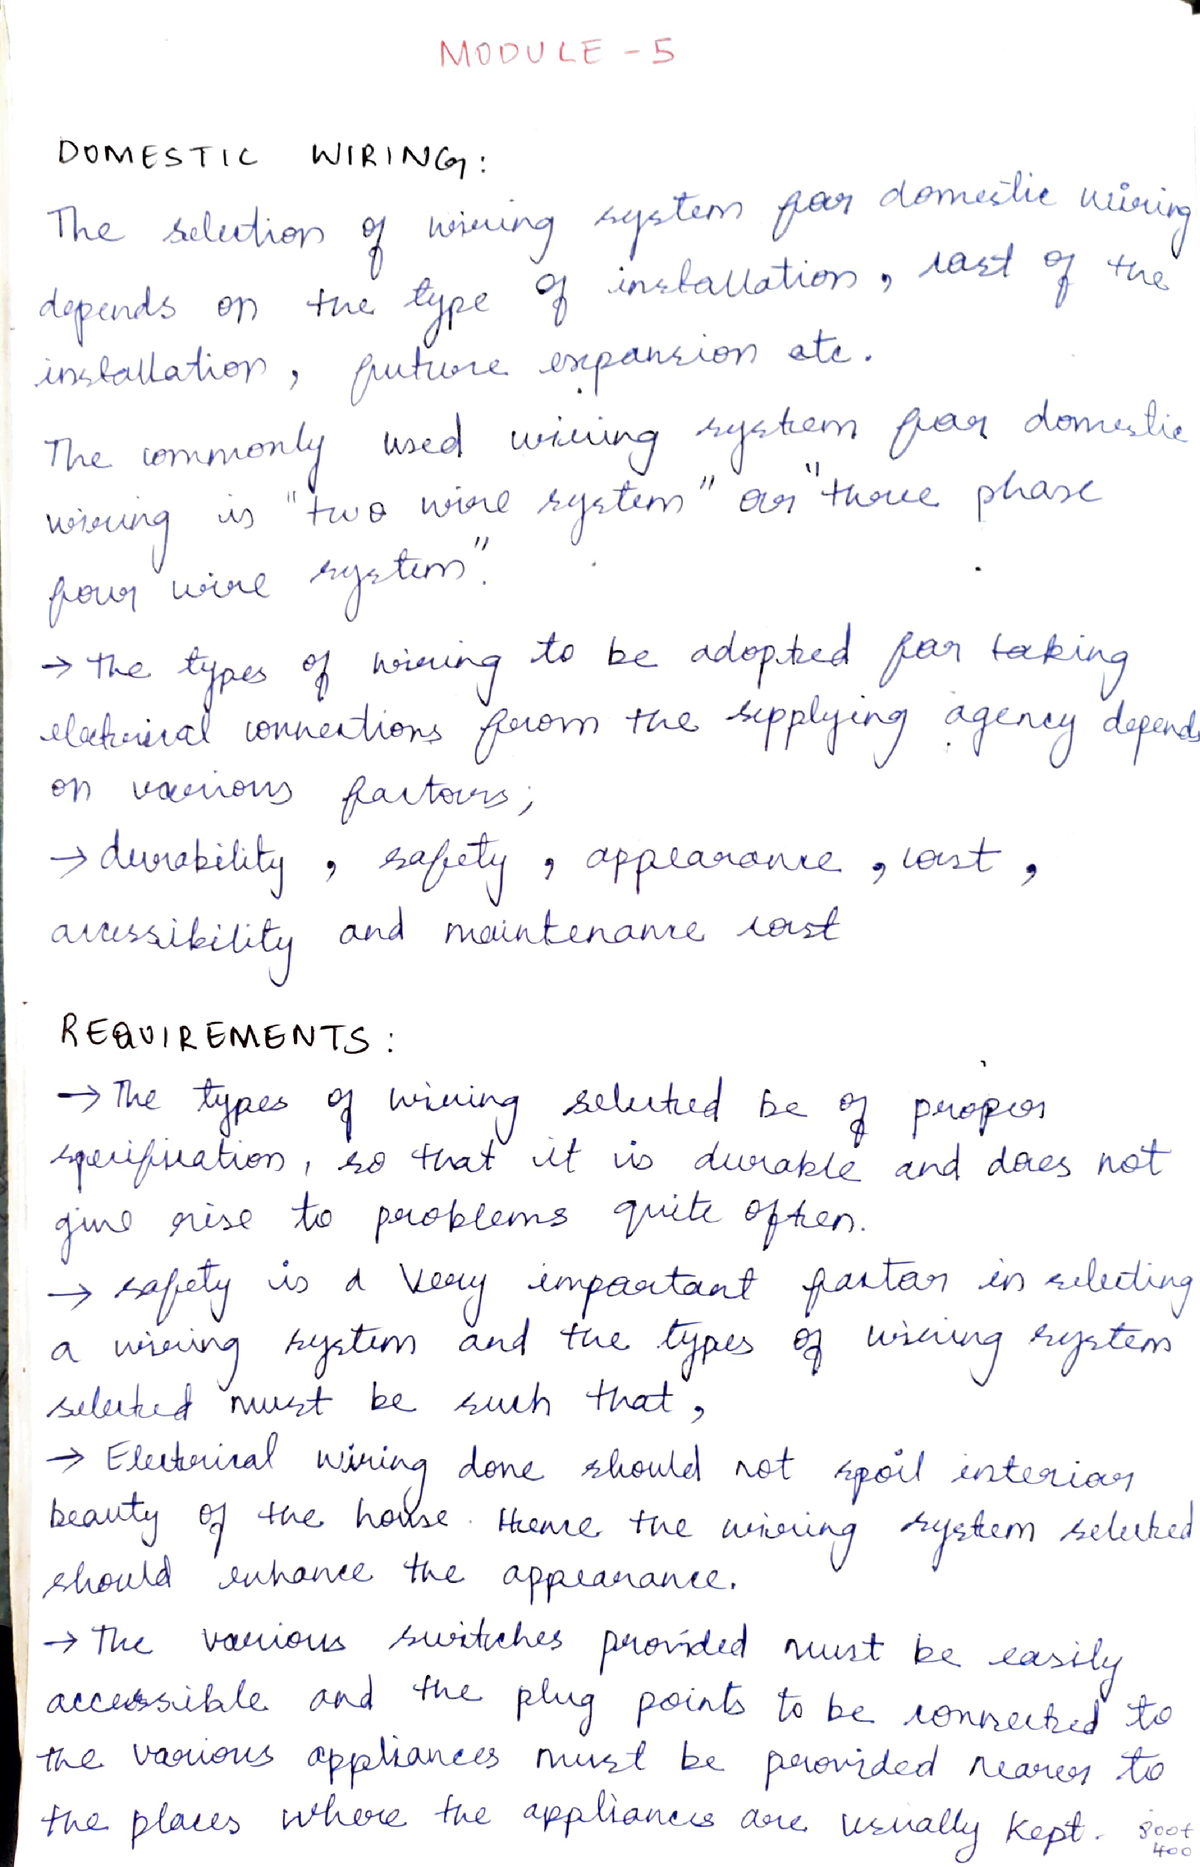 MODULE - 5
DOMESTIC WIRING:
The selection of wiring system for domestic wiring
depends on the type of installation, cost of the
installation, future expansion etc.
The commonly used wiring system for domestic
wiring is "two wire system" or "three phase
four wire system".
→ the types of wiring to be adopted for taking
electrical connections from the supplying agency depends
on various factors;
→ durability, safety, appearance, cost,
accessibility and maintenance cost
REQUIREMENTS:
→ The types of wiring selected be of proper
specification, so that it is durable and does not
give rise to problems quite often.
→ safety is a very important factor in selecting
a wiring system and the types of wiring system
selected must be such that,
→ Electrical wiring done should not spoil interior
beauty of the house. Hence the wiring system selected
should enhance the appearance.
→ The various switches provided must be easily
accessible and the plug points to be connected to
the various appliances must be provided nearer to
the places where the appliances are usually kept.
400